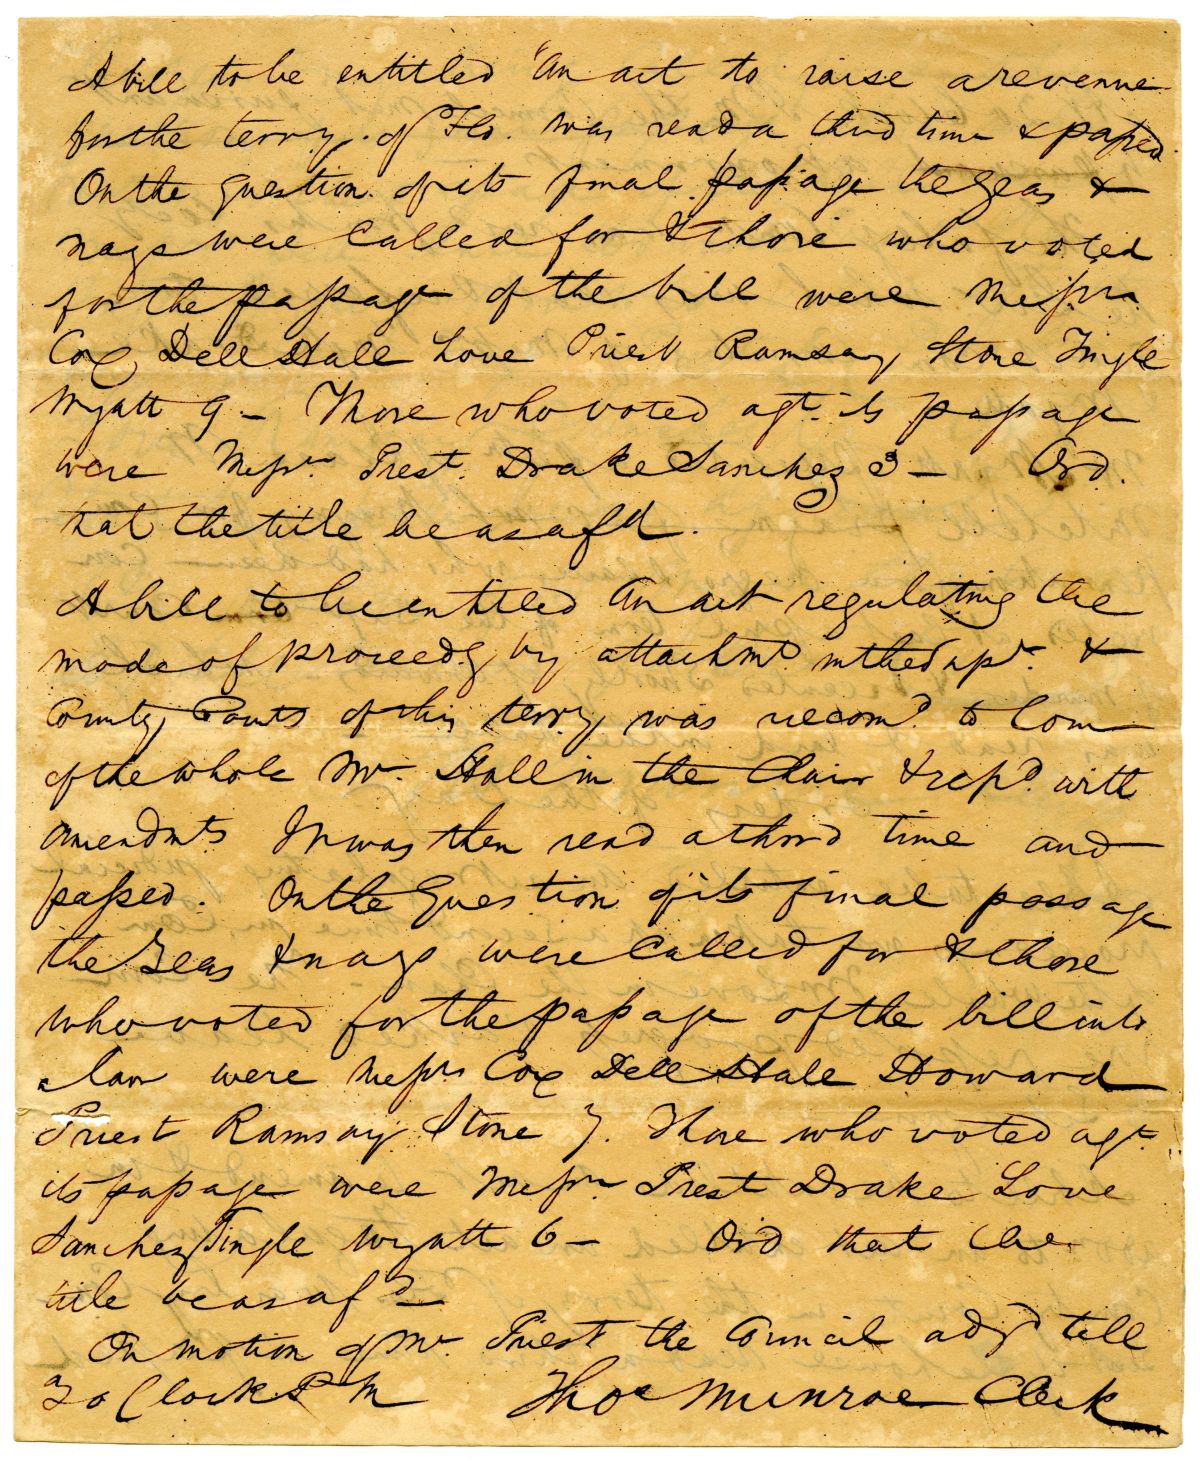 A bill to be entitled "An act to raise a revenue
for the terry. of Flo. was read a third time & passed.
On the question of its final passage the yeas &
nays were called for & those who voted
for the passage of the bill were Messrs.
Cox Dell Hall Love Priest Ramsay Stone Tingle
Wyatt 9 — Those who voted agt. its passage
were Messrs Prest. Drake Sanchez 3 — Ord.
that the title be as afd.
A bill to be entitled An act regulating the
mode of proceedg by attachmt in the Supr. &
County Courts of this terry was recomd to Com
of the whole Mr. Hall in the Chair & repd. with
amendmts. It was then read a third time and
passed. On the question of its final passage
the yeas & nays were called for & those
who voted for the passage of the bill into
a law were Messrs Cox Dell Hale Howard
Priest Ramsay Stone 7. Those who voted agt.
its passage were Messrs Prest Drake Love
Sanchez Tingle Wyatt 6 — Ord that the
title be as afd —
On motion of Mr. Priest the Council adjd till
7 o Clock P M Thos Munroe Clerk